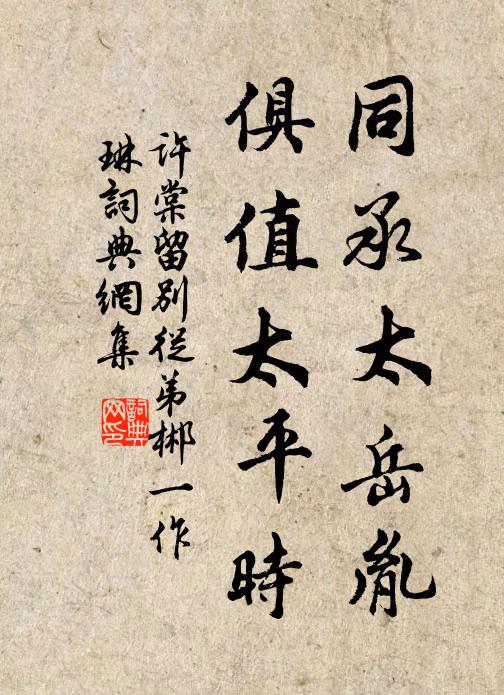 同承太岳胤
俱值太平時
許棠留別從弟郴一作
琳詞典網集
詞典网印